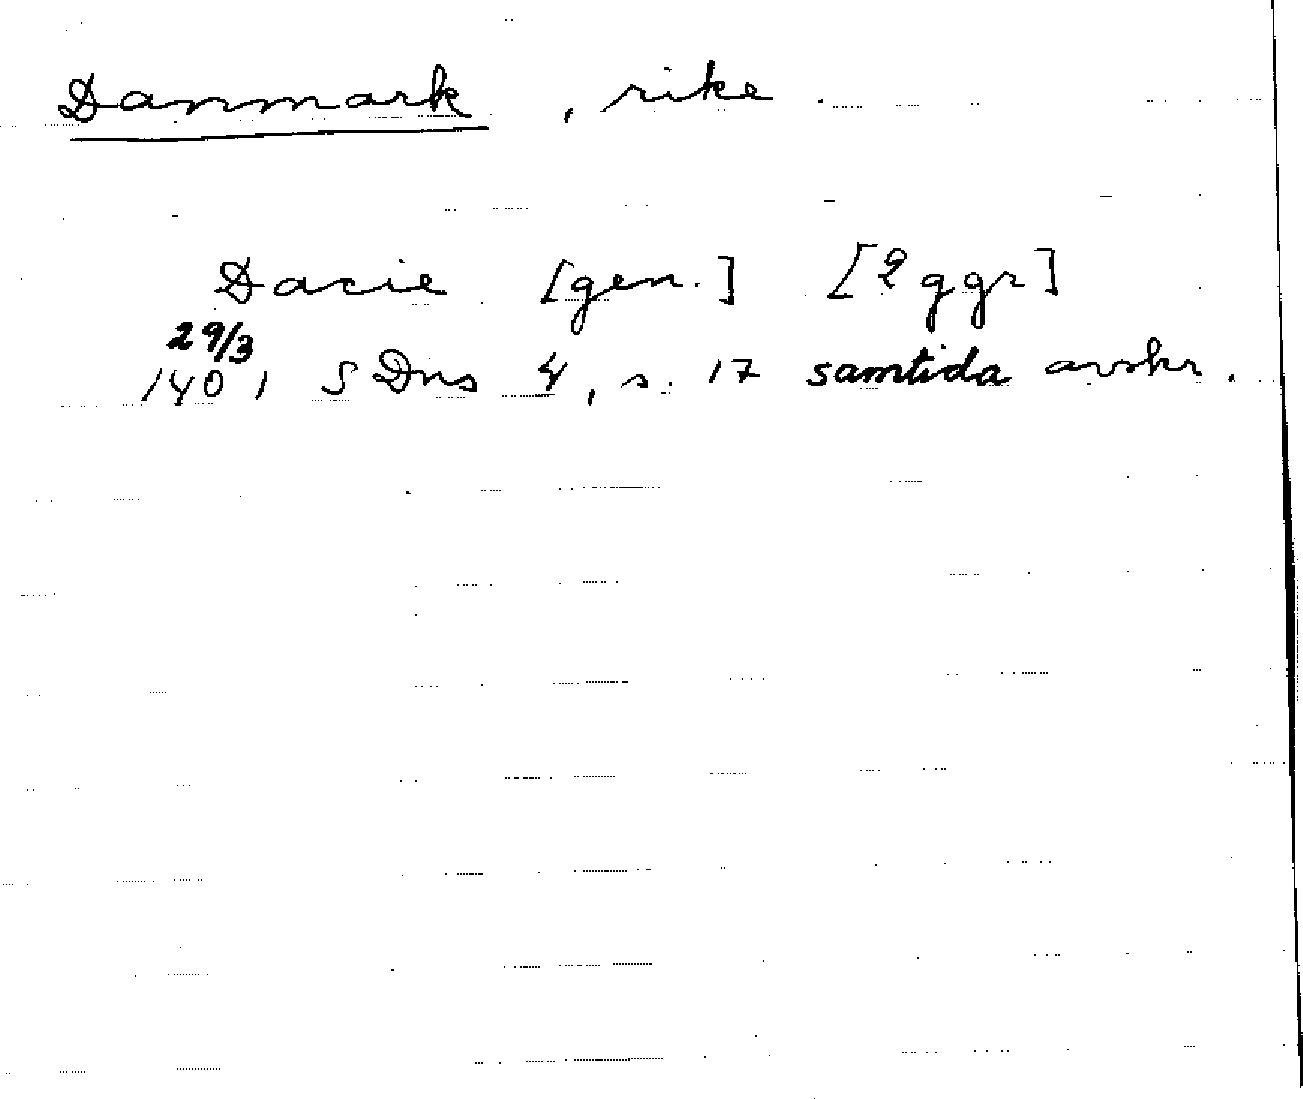 Danmark, rike.
Dacie [gen.] [2 ggr]
29/3
1401 SDns 4, s. 17 samtida avskr.